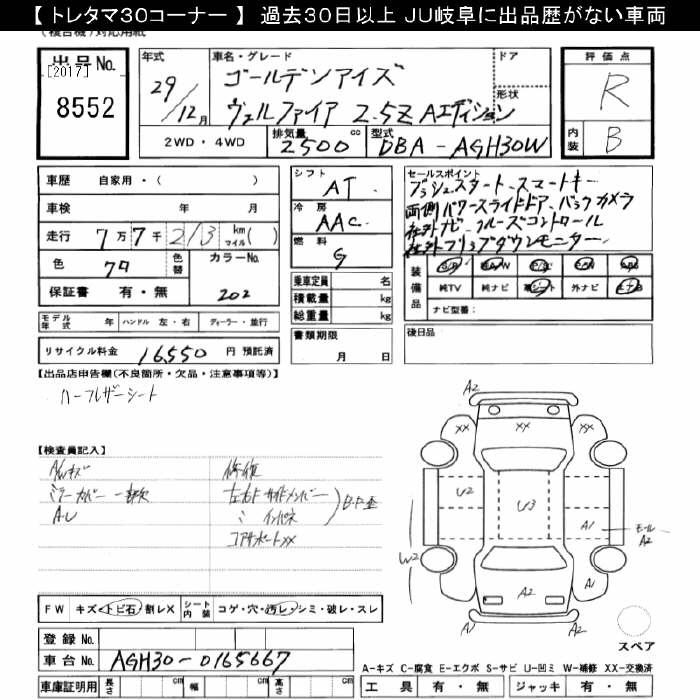 【トレタマ30コーナー】 過去30日以上 JU岐阜に出品歴がない車両
（複合機）対応用紙
出品No.
[2017]
8552
年式
29/12月
車名・グレード
ゴールデンアイズ
ヴェルファイア 2.5Z Aエディション
ドア
形状
評価点
R
内装
B
2WD・4WD
排気量
2500
cc
型式
DBA-AGH30W
車歴 自家用・( )
車検 年 月
走行 7万7千213 km マイル( )
色 クロ 色替 カラーNo.
保証書 有・無 202
シフト
AT
冷房
AAC
燃料
G
乗車定員 名
積載量 kg
総重量 kg
セールスポイント
プッシュスタート、スマートキー
両側パワースライドドア、バックカメラ
社外ナビ、クルーズコントロール
社外フリップダウンモニター
装備品
純TV 純ナビ 革シート 外ナビ
ナビ型番：
モデル年式 年 ハンドル 左・右 ディーラー・並行
リサイクル料金 16,550 円 預託済
書類期限
月 日
後日品
【出品店申告欄(不良箇所・欠品・注意事項等)】
ハーフレザーシート
【検査員記入】
AWキズ
ミラーカバー一部欠
A・U
修復
左右Fサイドメンバー
〃 インパネ
コアサポートXX
A2
XX
XX
XX
U2
U3
A1
モールA2
W2
A2
A1
A2
スペア
FW キズ・トビ石・割レX シート内装 コゲ・穴・汚レ・シミ・破レ・スレ
登録No.
車台No. AGH30-0165667
車庫証明用 長さ cm 幅 cm 高さ cm
A-キズ C-腐食 E-エクボ S-サビ U-凹ミ W-補修 XX-交換済
工具 有・無 ジャッキ 有・無